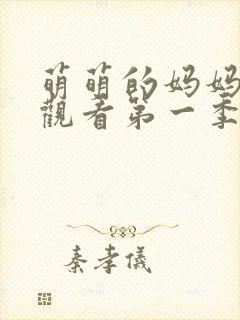 萌萌的妈妈
觀看第一季
秦孝儀